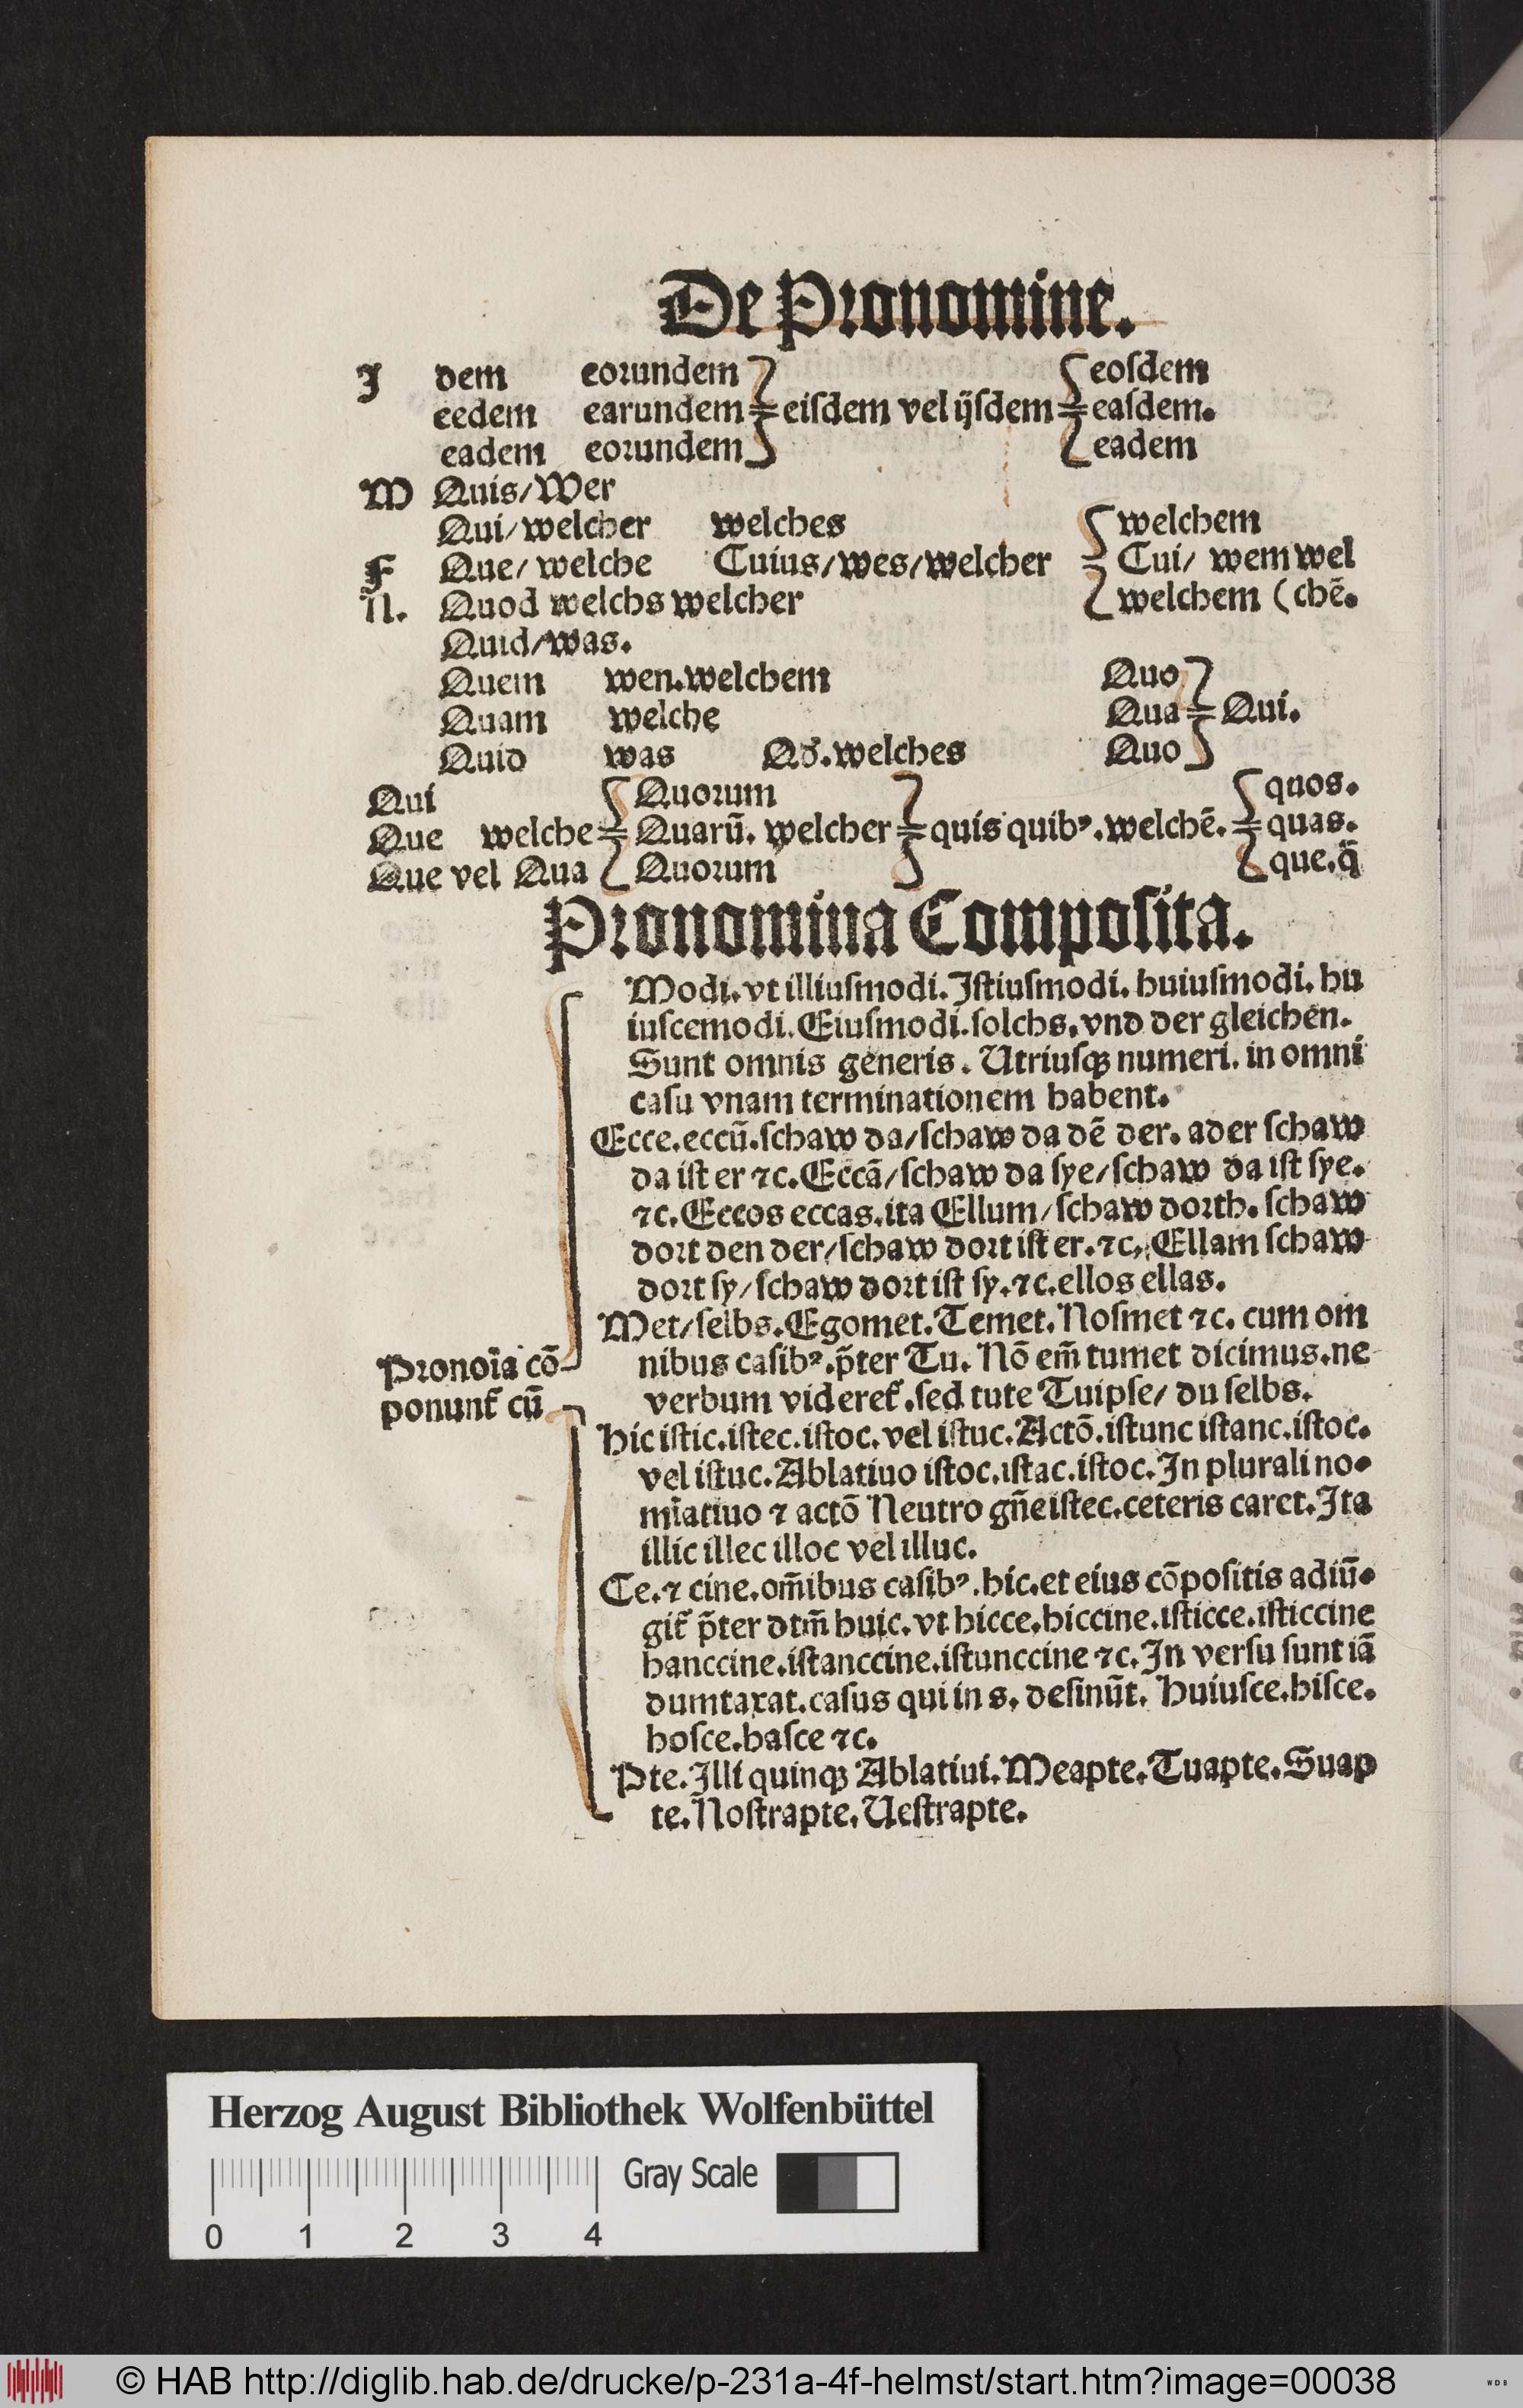 De Pronomine.
I dem eorundem eoſdem
eedem earundem eiſdem vel ijſdem eaſdem.
eadem eorundem eadem
M Quis/Wer
Qui/welcher welches welchem
F Que/ welche Cuius/wes/welcher Cui/ wem wel
N. Quod welchs welcher welchem (chē.
Quid/was.
Quem wen.welchem Quo
Quam welche Qua Qui.
Quid was Qđ.welches Quo
Qui Quorum quos.
Que welche Quarū. welcher quis quibꝰ.welchē. quas.
Que vel Qua Quorum que.q̄
Pronomina Compoſita.
Modi.vt illiuſmodi.Iſtiuſmodi.huiuſmodi.hu
iuſcemodi.Eiuſmodi.ſolchs.vnd der gleichen.
Sunt omnis generis. Utriuſqꝫ numeri.in omni
caſu vnam terminationem habent.
Ecce.eccū.ſchaw da/ſchaw da dē der. ader ſchaw
da iſt er ⁊c.Eccā/ſchaw da ſye/ſchaw da iſt ſye.
⁊c.Eccos eccas.ita Ellum/ſchaw dorth.ſchaw
dort den der/ſchaw dort iſt er.⁊c.Ellam ſchaw
dort ſy/ſchaw dort iſt ſy.⁊c.ellos ellas.
Met/ſelbs.Egomet.Temet.Noſmet ⁊c. cum om
Pronoīa cō- nibus caſibꝰ.p̄ter Tu. Nō em̄ tumet dicimus.ne
ponunt̃ cū verbum videret̃.ſed tute Tuipſe/ du ſelbs.
Hic iſtic.iſtec.iſtoc.vel iſtuc.Actō.iſtunc iſtanc.iſtoc.
vel iſtuc.Ablatiuo iſtoc.iſtac.iſtoc.In plurali no-
mīatiuo ⁊ actō Neutro gn̄e iſtec.ceteris caret.Ita
illic illec illoc vel illuc.
Ce.⁊ cine.om̄ibus caſibꝰ.hic.et eius cōpoſitis adiū-
git̃ p̄ter dtm̄ huic.vt hicce.hiccine.iſticce.iſticcine
hanccine.iſtanccine.iſtunccine ⁊c.In verſu ſunt iā
dumtaxat.caſus qui in s. deſinūt. Huiuſce.hiſce.
hoſce.haſce ⁊c.
Pte.Illi quinqꝫ Ablatiui.Meapte.Tuapte.Suap
te.Noſtrapte.Ueſtrapte.
Herzog August Bibliothek Wolfenbüttel
Gray Scale
0 1 2 3 4
© HAB http://diglib.hab.de/drucke/p-231a-4f-helmst/start.htm?image=00038
WDB